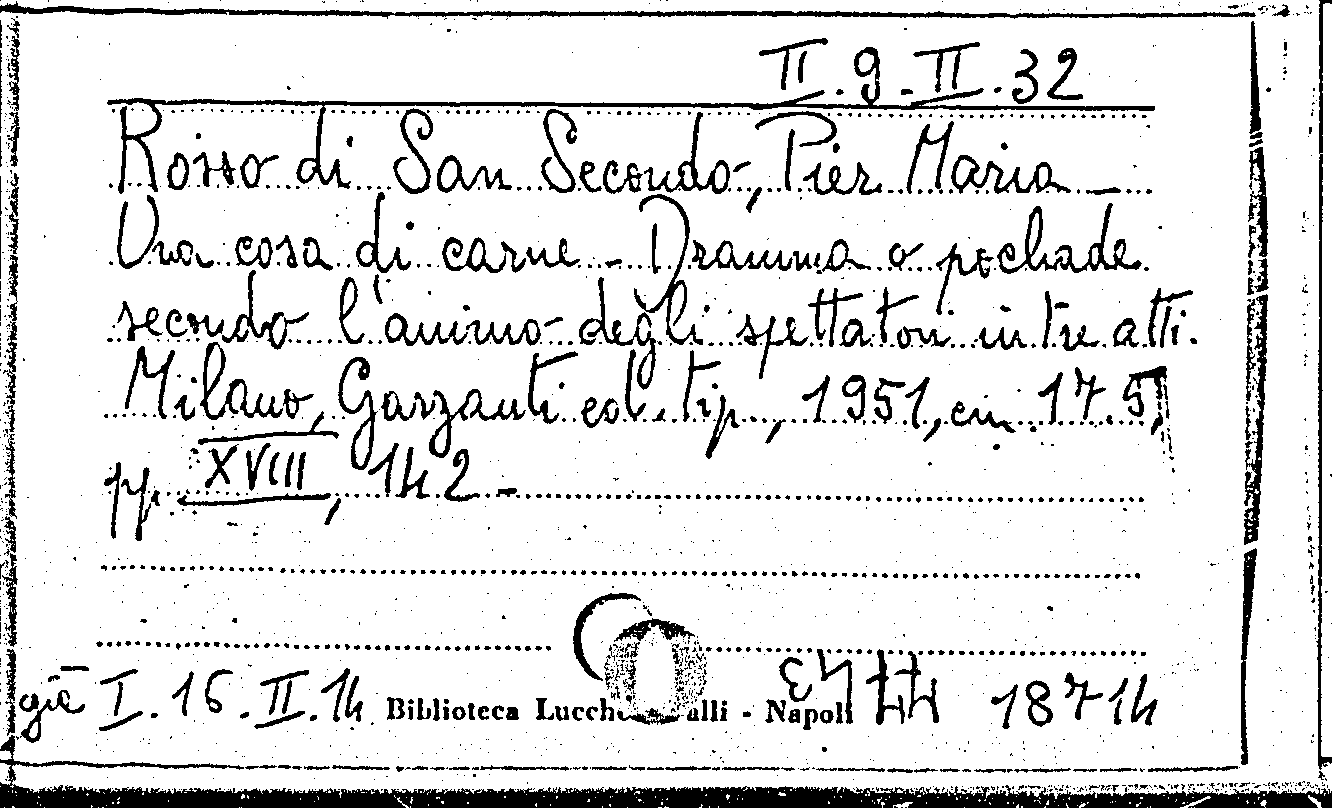 II.9.II.32
Rosso di San Secondo, Pier Maria –
Una cosa di carne – Dramma o pochade
secondo l'animo degli spettatori in tre atti.
Milano, Garzanti ed. tip., 1951, cm. 17.5,
pp. XVIII, 142 –
già I.16.II.14 Biblioteca Lucch alli - Napoli 18714